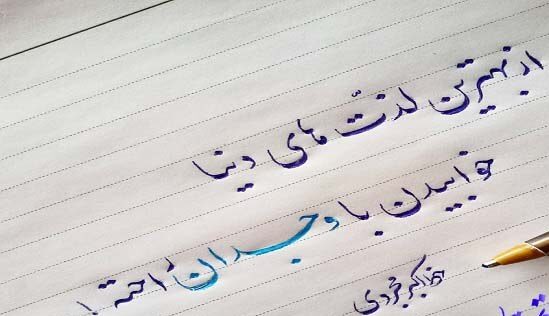 از بهترین لذّت های دنیا
خوابیدن با وجدان راحته !
خط اکبر مجردی